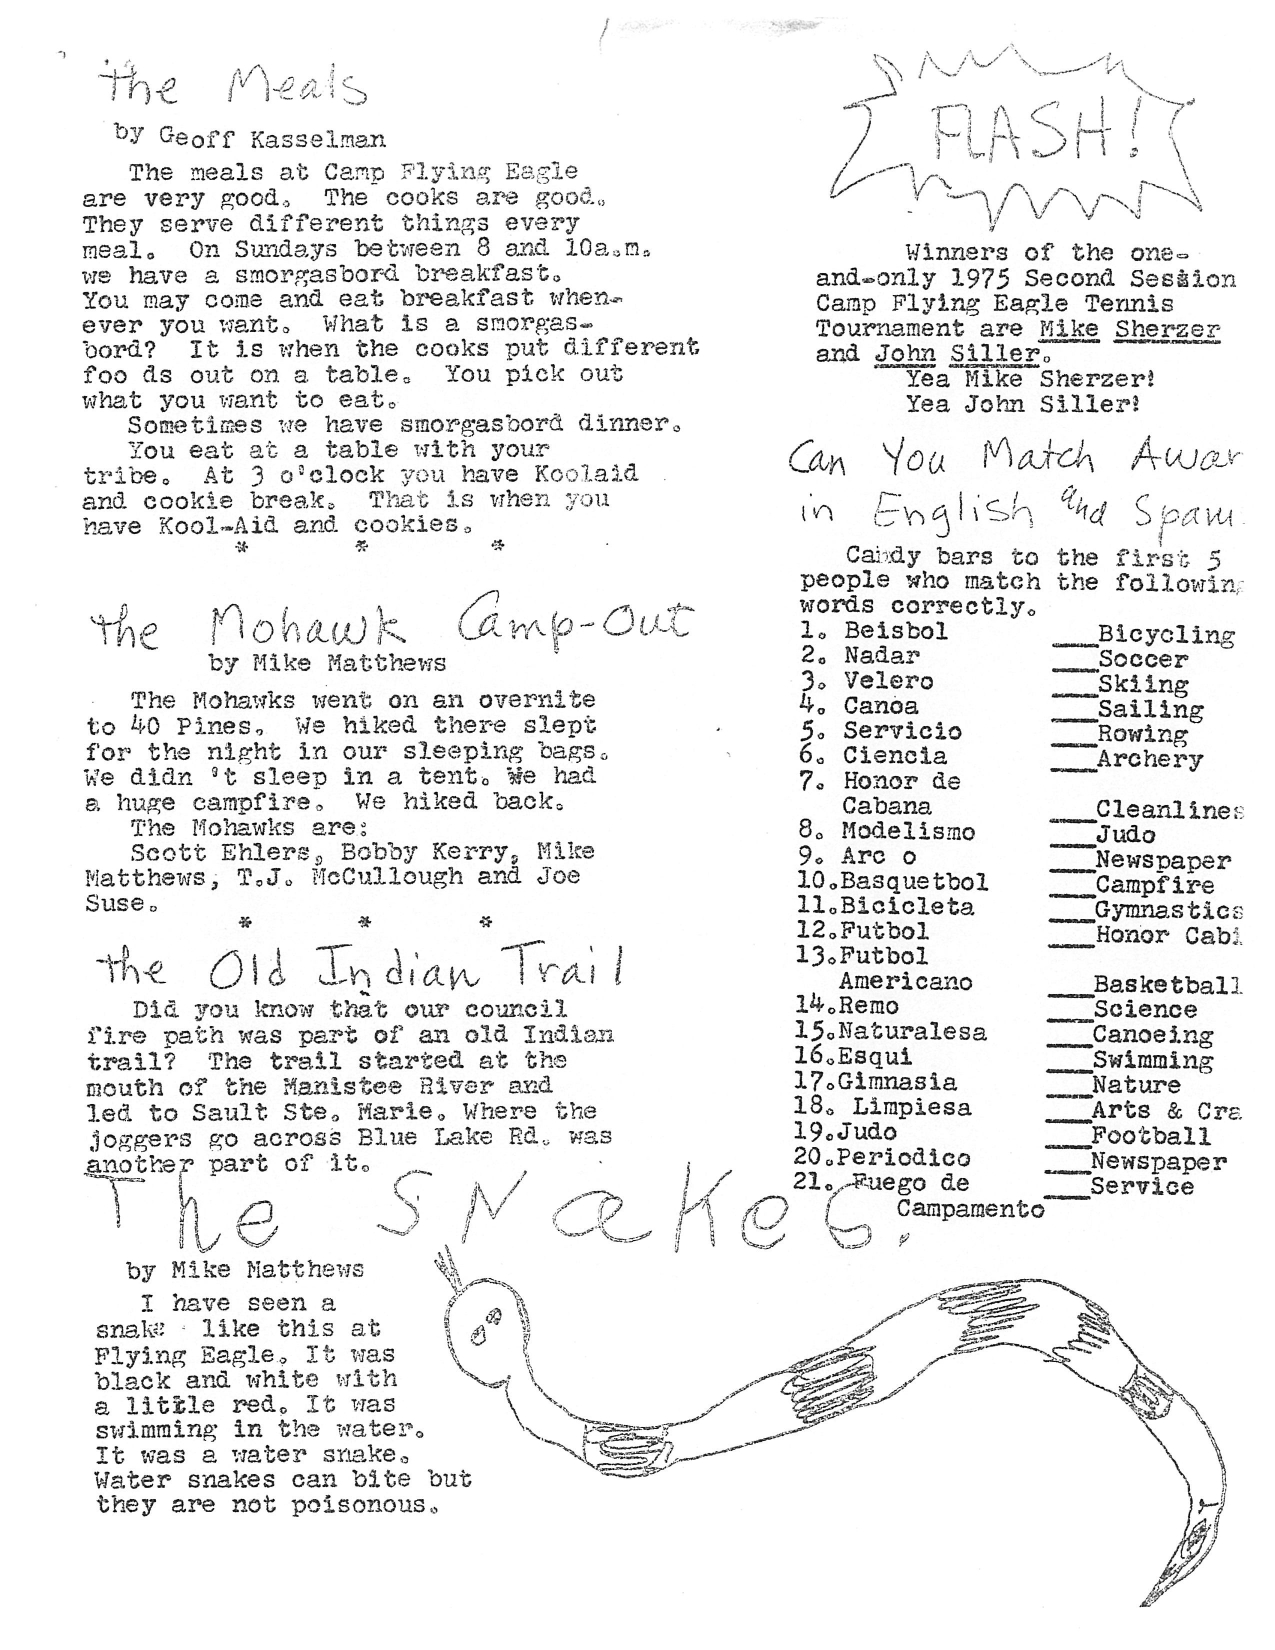 the Meals
by Geoff Kasselman
The meals at Camp Flying Eagle
are very good. The cooks are good.
They serve different things every
meal. On Sundays between 8 and 10a.m.
we have a smorgasbord breakfast.
You may come and eat breakfast when-
ever you want. What is a smorgas-
bord? It is when the cooks put different
foo ds out on a table. You pick out
what you want to eat.
Sometimes we have smorgasbord dinner.
You eat at a table with your
tribe. At 3 o'clock you have Koolaid
and cookie break. That is when you
have Kool-Aid and cookies.
* * *
the Mohawk Camp-Out
by Mike Matthews
The Mohawks went on an overnite
to 40 Pines. We hiked there slept
for the night in our sleeping bags.
We didn 't sleep in a tent. We had
a huge campfire. We hiked back.
The Mohawks are:
Scott Ehlers, Bobby Kerry, Mike
Matthews, T.J. McCullough and Joe
Suse.
* * *
the Old Indian Trail
Did you know that our council
fire path was part of an old Indian
trail? The trail started at the
mouth of the Manistee River and
led to Sault Ste. Marie. Where the
joggers go across Blue Lake Rd. was
another part of it.
The SNakes.
by Mike Matthews
I have seen a
snake like this at
Flying Eagle. It was
black and white with
a little red. It was
swimming in the water.
It was a water snake.
Water snakes can bite but
they are not poisonous.
FLASH!
Winners of the one-
and-only 1975 Second Session
Camp Flying Eagle Tennis
Tournament are Mike Sherzer
and John Siller.
Yea Mike Sherzer!
Yea John Siller!
Can You Match Awar
in English and Span
Candy bars to the first 5
people who match the following
words correctly.
1. Beisbol ___Bicycling
2. Nadar ___Soccer
3. Velero ___Skiing
4. Canoa ___Sailing
5. Servicio ___Rowing
6. Ciencia ___Archery
7. Honor de
Cabana ___Cleanlines
8. Modelismo ___Judo
9. Arc o ___Newspaper
10.Basquetbol ___Campfire
11.Bicicleta ___Gymnastics
12.Futbol ___Honor Cabi
13.Futbol
Americano ___Basketball
14.Remo ___Science
15.Naturalesa ___Canoeing
16.Esqui ___Swimming
17.Gimnasia ___Nature
18. Limpiesa ___Arts & Cra
19.Judo ___Football
20.Periodico ___Newspaper
21. Fuego de ___Service
Campamento